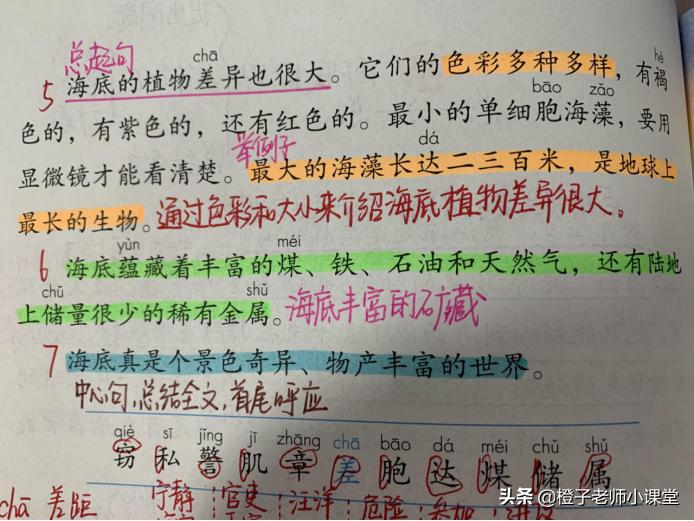 总起句
chā
5 海底的植物差异也很大。它们的色彩多种多样，有褐
hè
bāo zǎo
色的，有紫色的，还有红色的。最小的单细胞海藻，要用
举例子
dá
显微镜才能看清楚。最大的海藻长达二三百米，是地球上
最长的生物。通过色彩和大小来介绍海底植物差异很大。
yùn méi
6 海底蕴藏着丰富的煤、铁、石油和天然气，还有陆地
chǔ shǔ
上储量很少的稀有金属。海底丰富的矿藏
7 海底真是个景色奇异、物产丰富的世界。
中心句,总结全文,首尾呼应
qiè sī jǐng jī zhāng chā bāo dá méi chǔ shǔ
窃 私 警 肌 章 差 胞 达 煤 储 属
chā 差距 宁静 官吏 汪洋 危险 参加
头条 @橙子老师小课堂